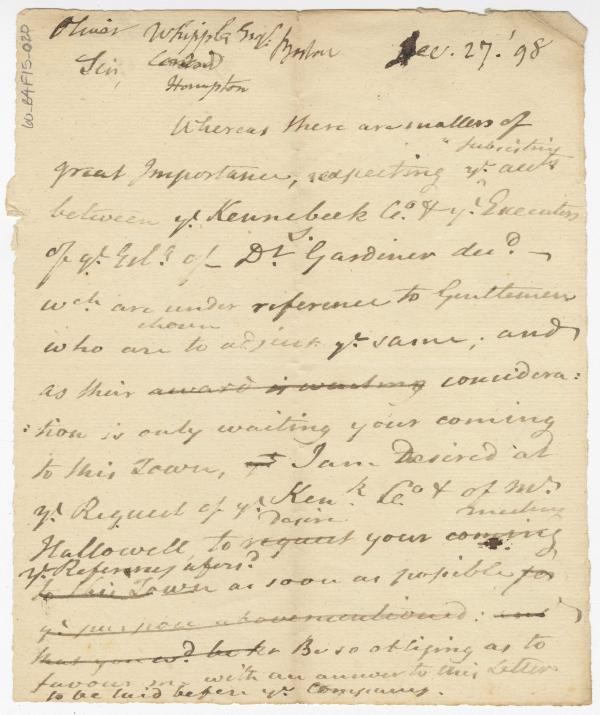 60-EAF15-020
Oliver Whipple Esqr. Boston Dec. 27.' 98
Sir,
Hampton
Whereas there are matters of
subsisting
great Importance, respecting ye. acts
between ye. Kennebeck Co. & ye. Executors
of ye. Est. of Dr. S. Gardiner decd. –
wch. are under reference to Gentlemen
chosen
who are to adjust ye. same; and
as their award is waiting considera:
:tion is only waiting your coming
to this Town, I am Desired at
ye. Request of ye. Kenk. Co. & of Mr.
Desire meeting
Hallowell, to request your coming
ye. Referrees afersd.
to this Town as soon as posible for
ye. purpose abovementioned: and
that you wd. be Be so obliging as to
favour me with an answer to this Letter
to be laid before ye. Company.